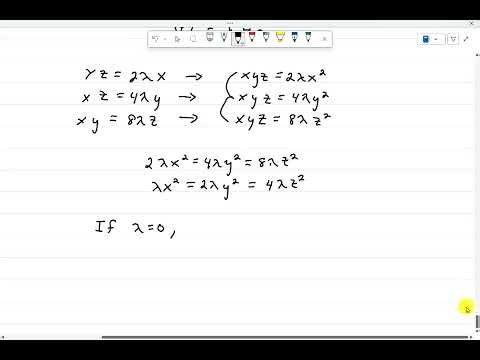 yz = 2λx → xyz = 2λx²
xz = 4λy → xyz = 4λy²
xy = 8λz → xyz = 8λz²
2λx² = 4λy² = 8λz²
λx² = 2λy² = 4λz²
If λ=0,